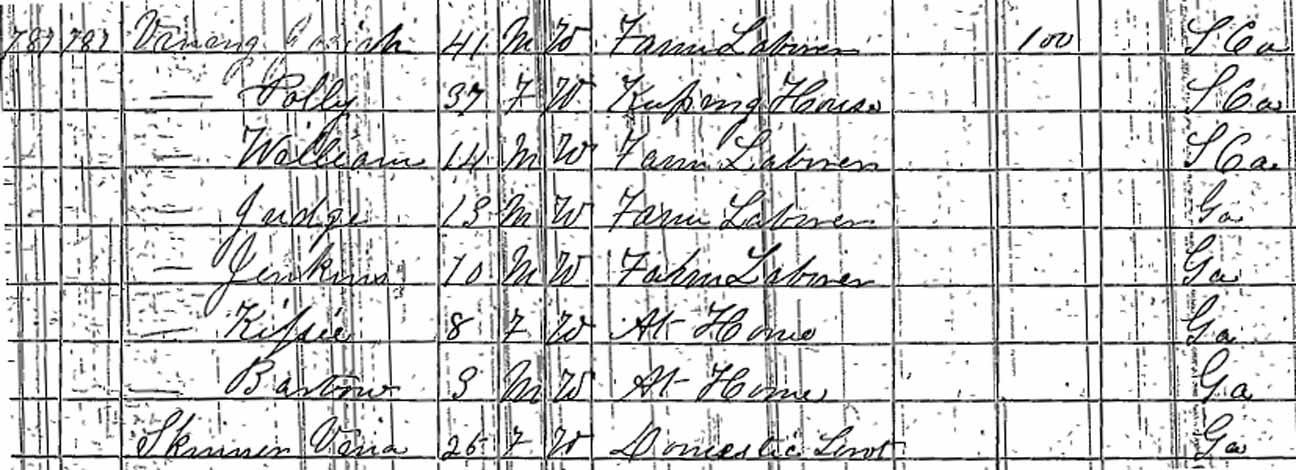 787 787 41 M W Farm Laborer 100 S Ca
— Polly 37 F W Keeping House S Ca
— William 14 M W Farm Laborer S Ca
— Judge 13 M W Farm Laborer Ga
— Jenkins 10 M W Farm Laborer Ga
— Kissie 8 F W At Home Ga
— Bartow M W At Home Ga
Skinner 26 F W Domestic Servt Ga